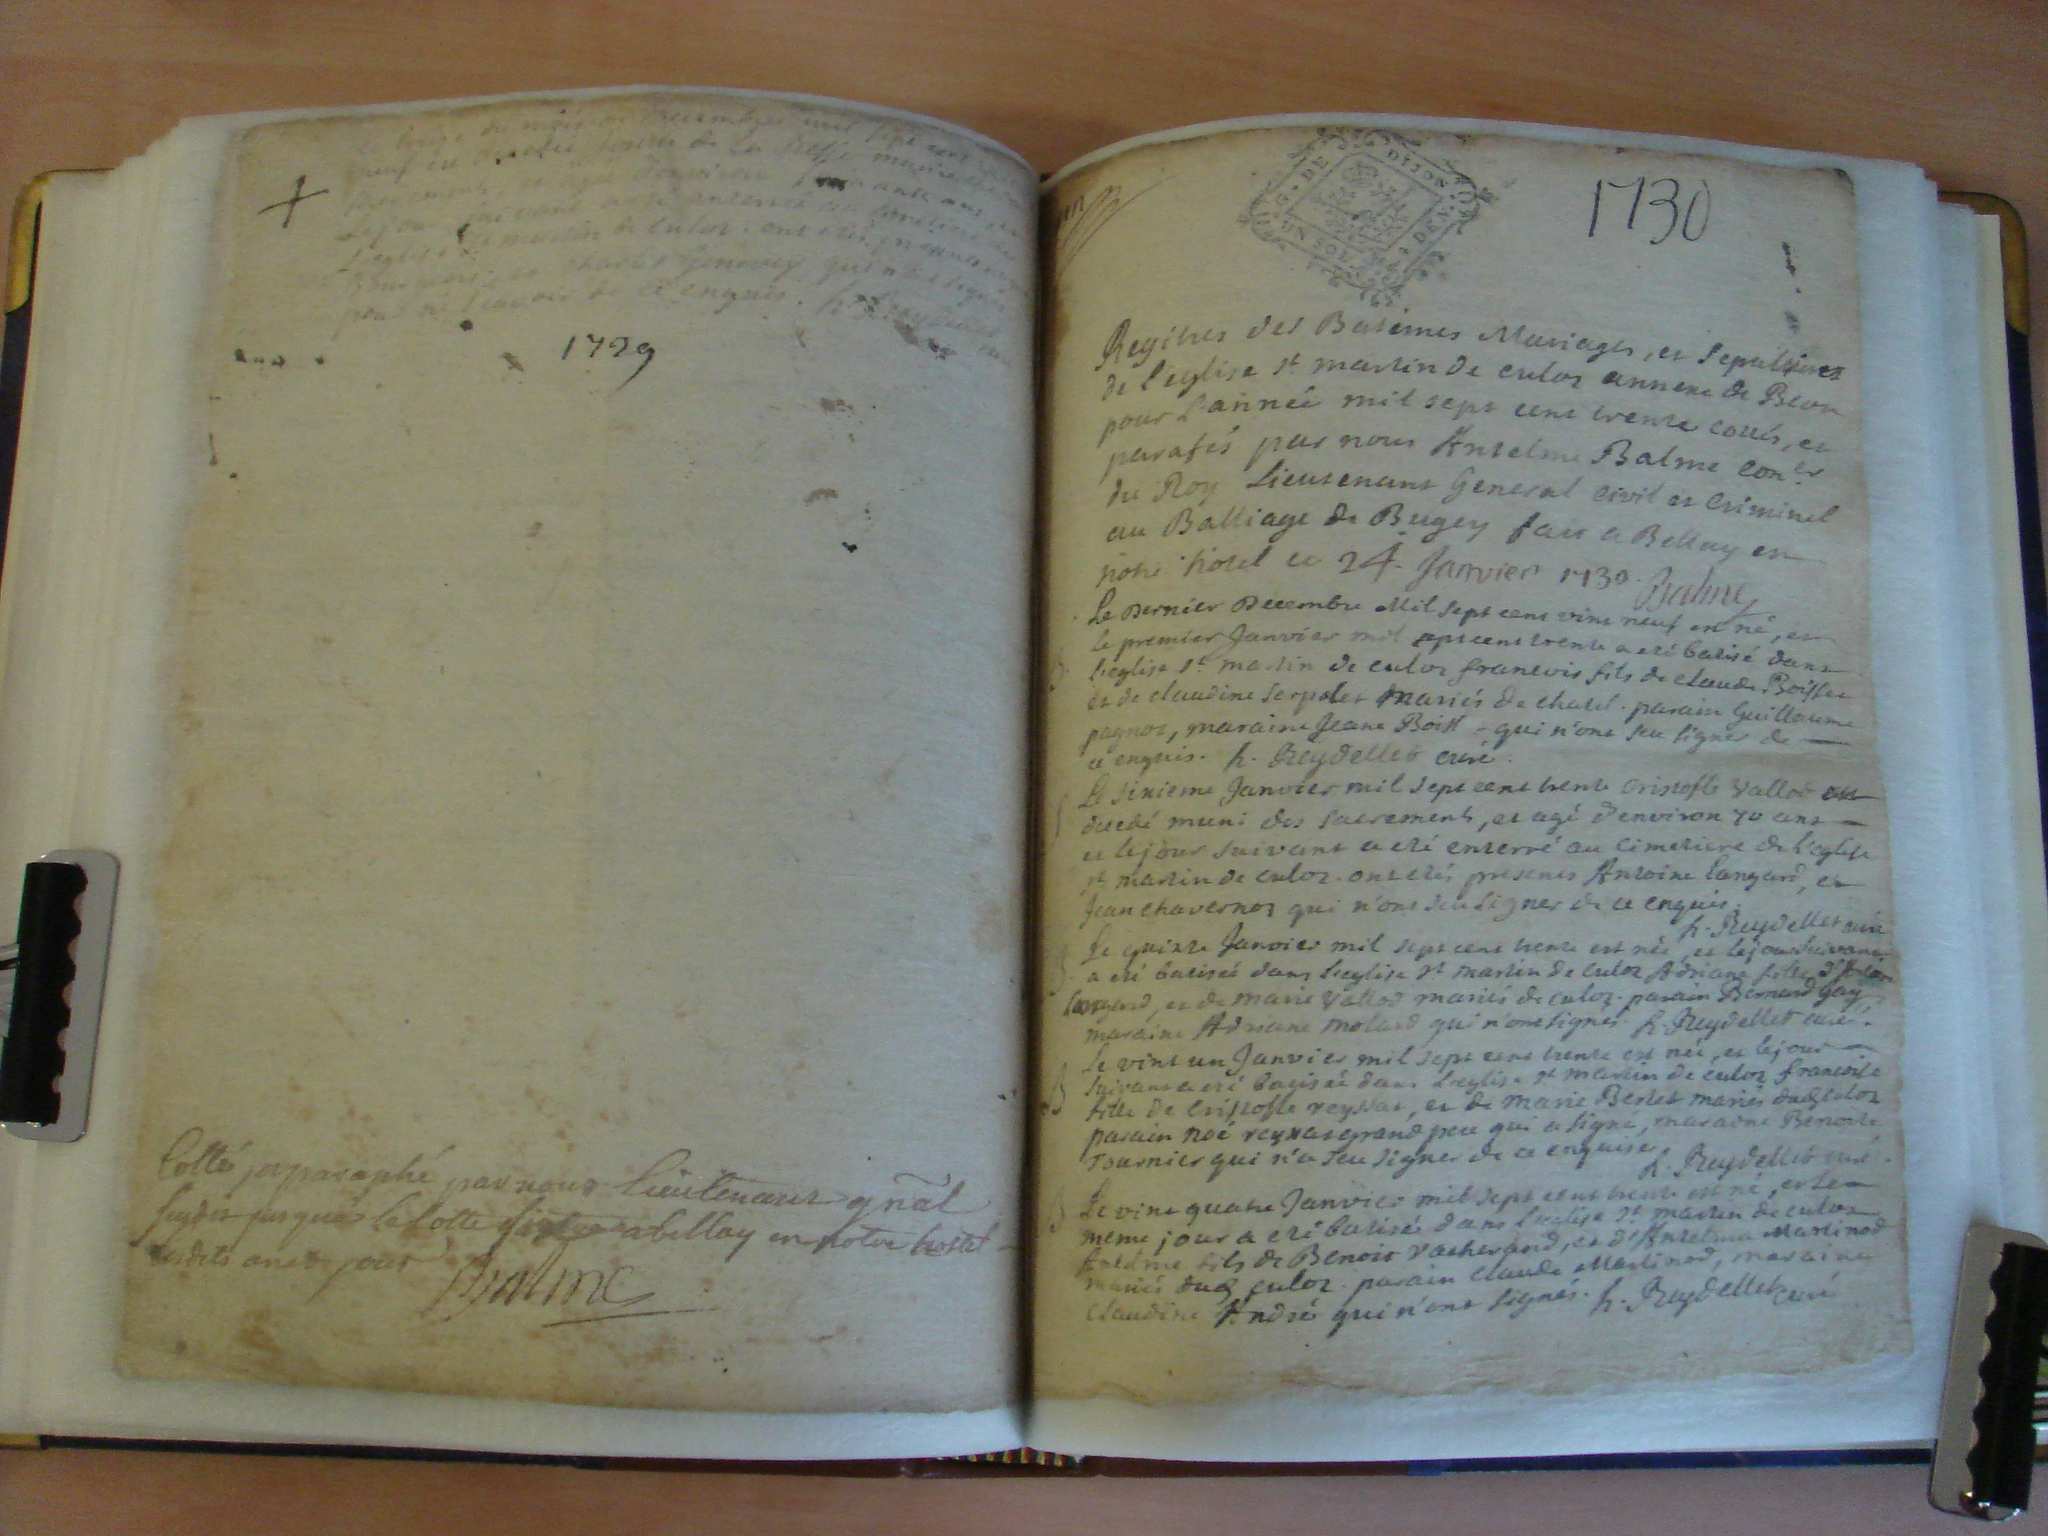 +
le
du mois de decembre mil sept cent
neuf est decedé
sacrements, et agé d'environ ans, et
le jour suivant a eté enterré au cimetiere de
l'eglise st martin de culoz. ont etés presents
et Charles qui n'ont signés
pour ne scavoir de ce enquis. h. Reydellet curé
1729
Cotté et paraphé par nous Lieutenant gnãl
jusques la cotte a bellay en notre hostel
lesdits an et jour
Balme
G. DE DIJON
UN SOL DEN.
1730
Regitres des Batêmes Mariages, et Sepultures
de l'eglise st martin de culoz annexe de Beon
pour l'année mil sept cent trente cottés, et
parafés par nous Anselme Balme Con.er
du Roy Lieutenant General Civil et Criminel
au Balliage de Bugey fait a Bellay en
notre hotel ce 24. Janvier 1730. Balme
Le dernier decembre Mil sept cent vint neuf est né, et
le premier Janvier mil sept cent trente a eté batisé dans
l'eglise st martin de culoz francois fils de claude Boissett
et de claudine serpolet mariés de chatel. parain Guillaume
pagnoz, maraine Jeane Boiss qui n'ont seu signer de
ce enquis. h. Reydellet curé.
S Le sixieme Janvier mil sept cent trente cristofle Vallod est
decedé muni des sacrements, et agé d'environ 70 ans
et le jour suivant a eté enterré au cimetiere de l'eglise
st martin de culoz. ont etés presents Antoine Langard, et
Jean chavernoz qui n'ont seu signer de ce enquis.
h. Reydellet curé
B Le quinze Janvier mil sept cent trente est née, et le jour suivant
a eté batisée dans l'eglise st martin de culoz Adriane fille d'Antoine
Langard, et de marie Vallod mariés de culoz. parain Bernard Gay
maraine Adriane molard qui n'ont signés. h. Reydellet curé.
Le vint un Janvier mil sept cent trente est née, et le jour
B suivant a eté batisée dans l'eglise st martin de culoz francoise
fille de cristofle reyssat, et de marie Berlet mariés dud culoz
parain noé reyssat grand pere qui a signé, maraine Benoite
Tournier qui n'a seu signer de ce enquise.
h. Reydellet curé.
B Le vint quatre Janvier mil sept cent trente est né, et le
meme jour a eté batisé dans l'eglise st martin de culoz
Antelme fils de Benoit vacherand, et d'Antelma Martinod
mariés dud culoz. parain claude Martinod, maraine
claudine André qui n'ont signés. h. Reydellet curé